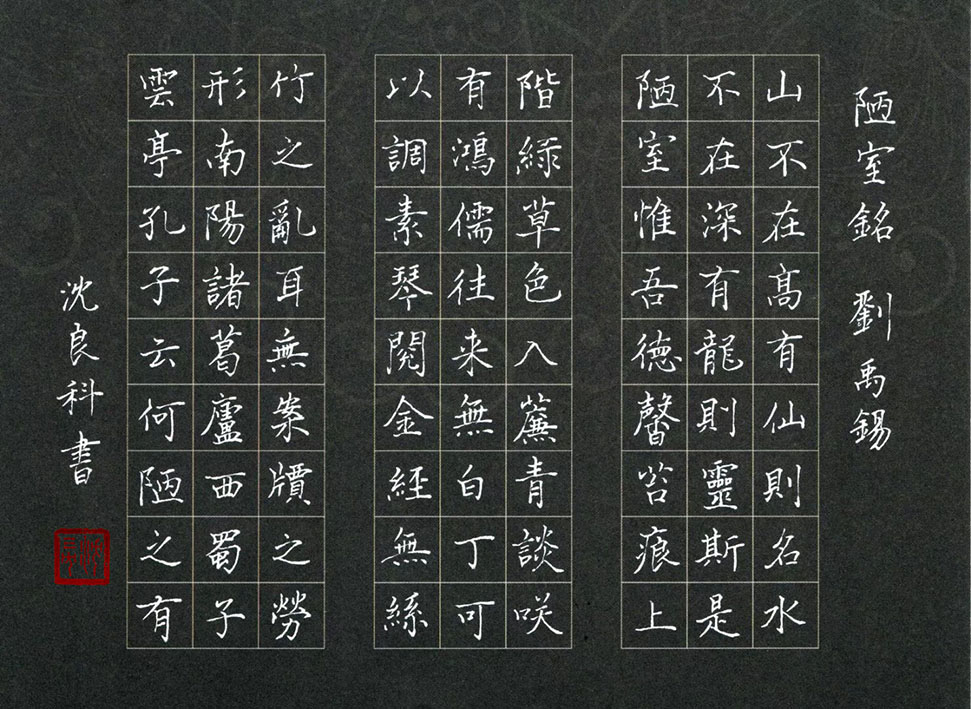 陋室銘 劉禹錫
山不在高有仙則名水
不在深有龍則靈斯是
陋室惟吾德馨苔痕上
階綠草色入簾青談咲
有鴻儒往来無白丁可
以調素琴閱金經無絲
竹之亂耳無案牘之勞
形南陽諸葛廬西蜀子
雲亭孔子云何陋之有
沈良科書